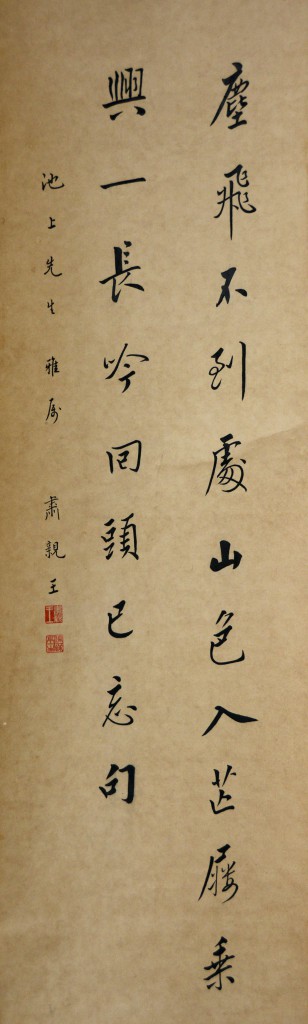 塵飛不到處山色入芒屩乘
興一長吟回頭已忘句
池上先生 雅屬 肅親王